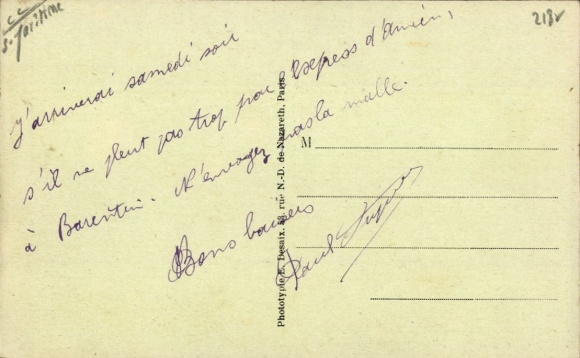 j'arriverai samedi soir
s'il ne pleut pas trop par l'express d'Amiens
à Barentin. N'envoyez pas la malle.
Bons baisers
Paul
M
Phototypie E. Desaix, rue N.-D. de Nazareth, Paris
218